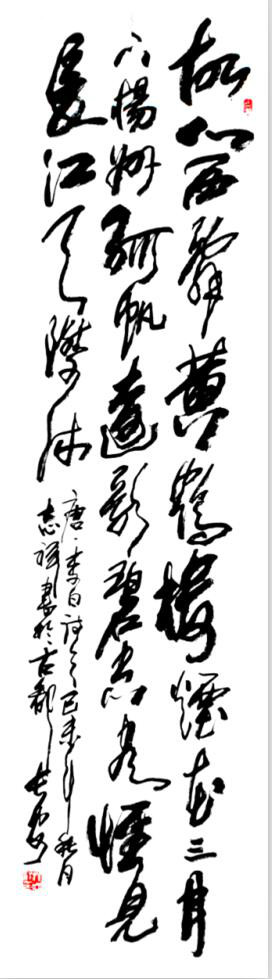 故人西辭黄鶴樓煙花三月
下楊州孤帆遠影碧空盡惟見
長江天際流
唐李白詩己未年秋月
志書於古都長安